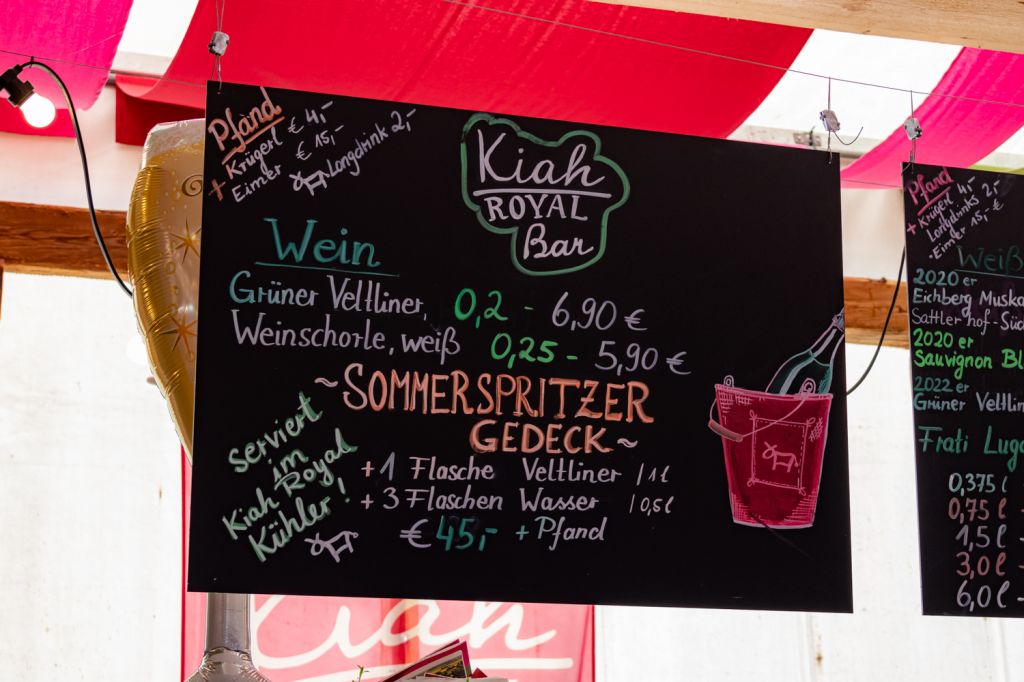 Pfand
+ Krügerl € 4,-
Eimer € 15,-
Longdrink 2,-
Kiah
ROYAL
Bar
Wein
Grüner Veltliner, 0,2 - 6,90 €
Weinschorle, weiß 0,25 - 5,90 €
~ SOMMERSPRITZER
GEDECK ~
serviert
im
Kiah Royal
Kühler!
+ 1 Flasche Veltliner / 1 l
+ 3 Flaschen Wasser / 0,5 l
€ 45,- + Pfand
Kiah
Pfand
+ Krügerl 4,-
Longdrinks 2,-
- Eimer 15,- €
Weiß
2020 er
Eichberg Muska
Sattler hof - Süd
2020 er
Sauvignon Bl
2022 er
Grüner Veltlin
Frati Luga
0,375 l
0,75 l -
1,5 l -
3,0 l -
6,0 l -